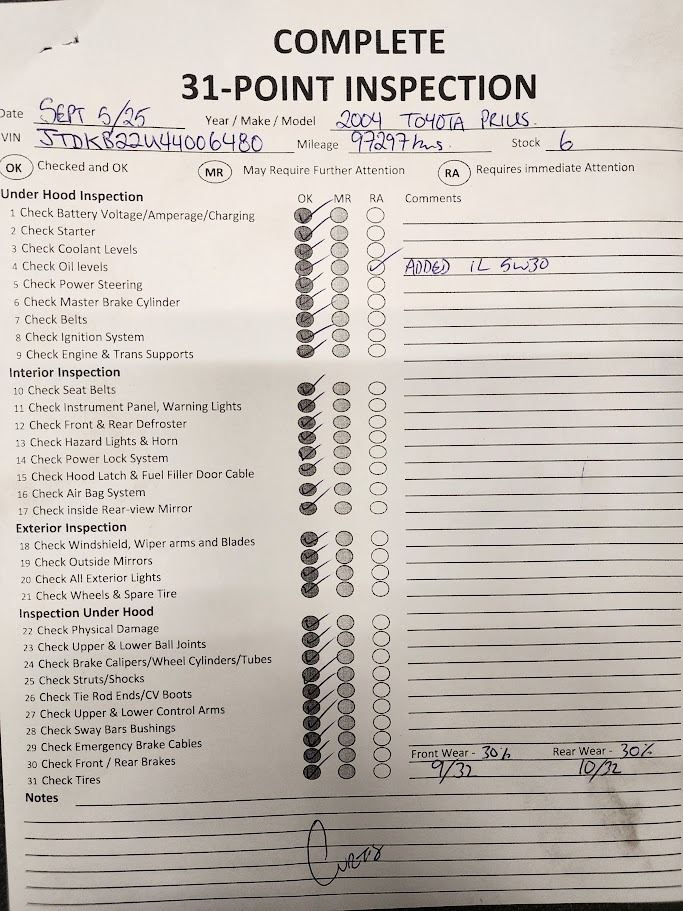 COMPLETE
31-POINT INSPECTION
Date SEPT 5/25 Year / Make / Model 2004 TOYOTA PRIUS.
VIN JTDKB22U44006480 Mileage 97297 kms. Stock 6
OK Checked and OK MR May Require Further Attention RA Requires immediate Attention
Under Hood Inspection OK MR RA Comments
1 Check Battery Voltage/Amperage/Charging
2 Check Starter
3 Check Coolant Levels
4 Check Oil levels ADDED 1L 5W30
5 Check Power Steering
6 Check Master Brake Cylinder
7 Check Belts
8 Check Ignition System
9 Check Engine & Trans Supports
Interior Inspection
10 Check Seat Belts
11 Check Instrument Panel, Warning Lights
12 Check Front & Rear Defroster
13 Check Hazard Lights & Horn
14 Check Power Lock System
15 Check Hood Latch & Fuel Filler Door Cable
16 Check Air Bag System
17 Check inside Rear-view Mirror
Exterior Inspection
18 Check Windshield, Wiper arms and Blades
19 Check Outside Mirrors
20 Check All Exterior Lights
21 Check Wheels & Spare Tire
Inspection Under Hood
22 Check Physical Damage
23 Check Upper & Lower Ball Joints
24 Check Brake Calipers/Wheel Cylinders/Tubes
25 Check Struts/Shocks
26 Check Tie Rod Ends/CV Boots
27 Check Upper & Lower Control Arms
28 Check Sway Bars Bushings
29 Check Emergency Brake Cables
30 Check Front / Rear Brakes Front Wear - 30% Rear Wear - 30%
31 Check Tires 9/32 10/32
Notes
Curtis